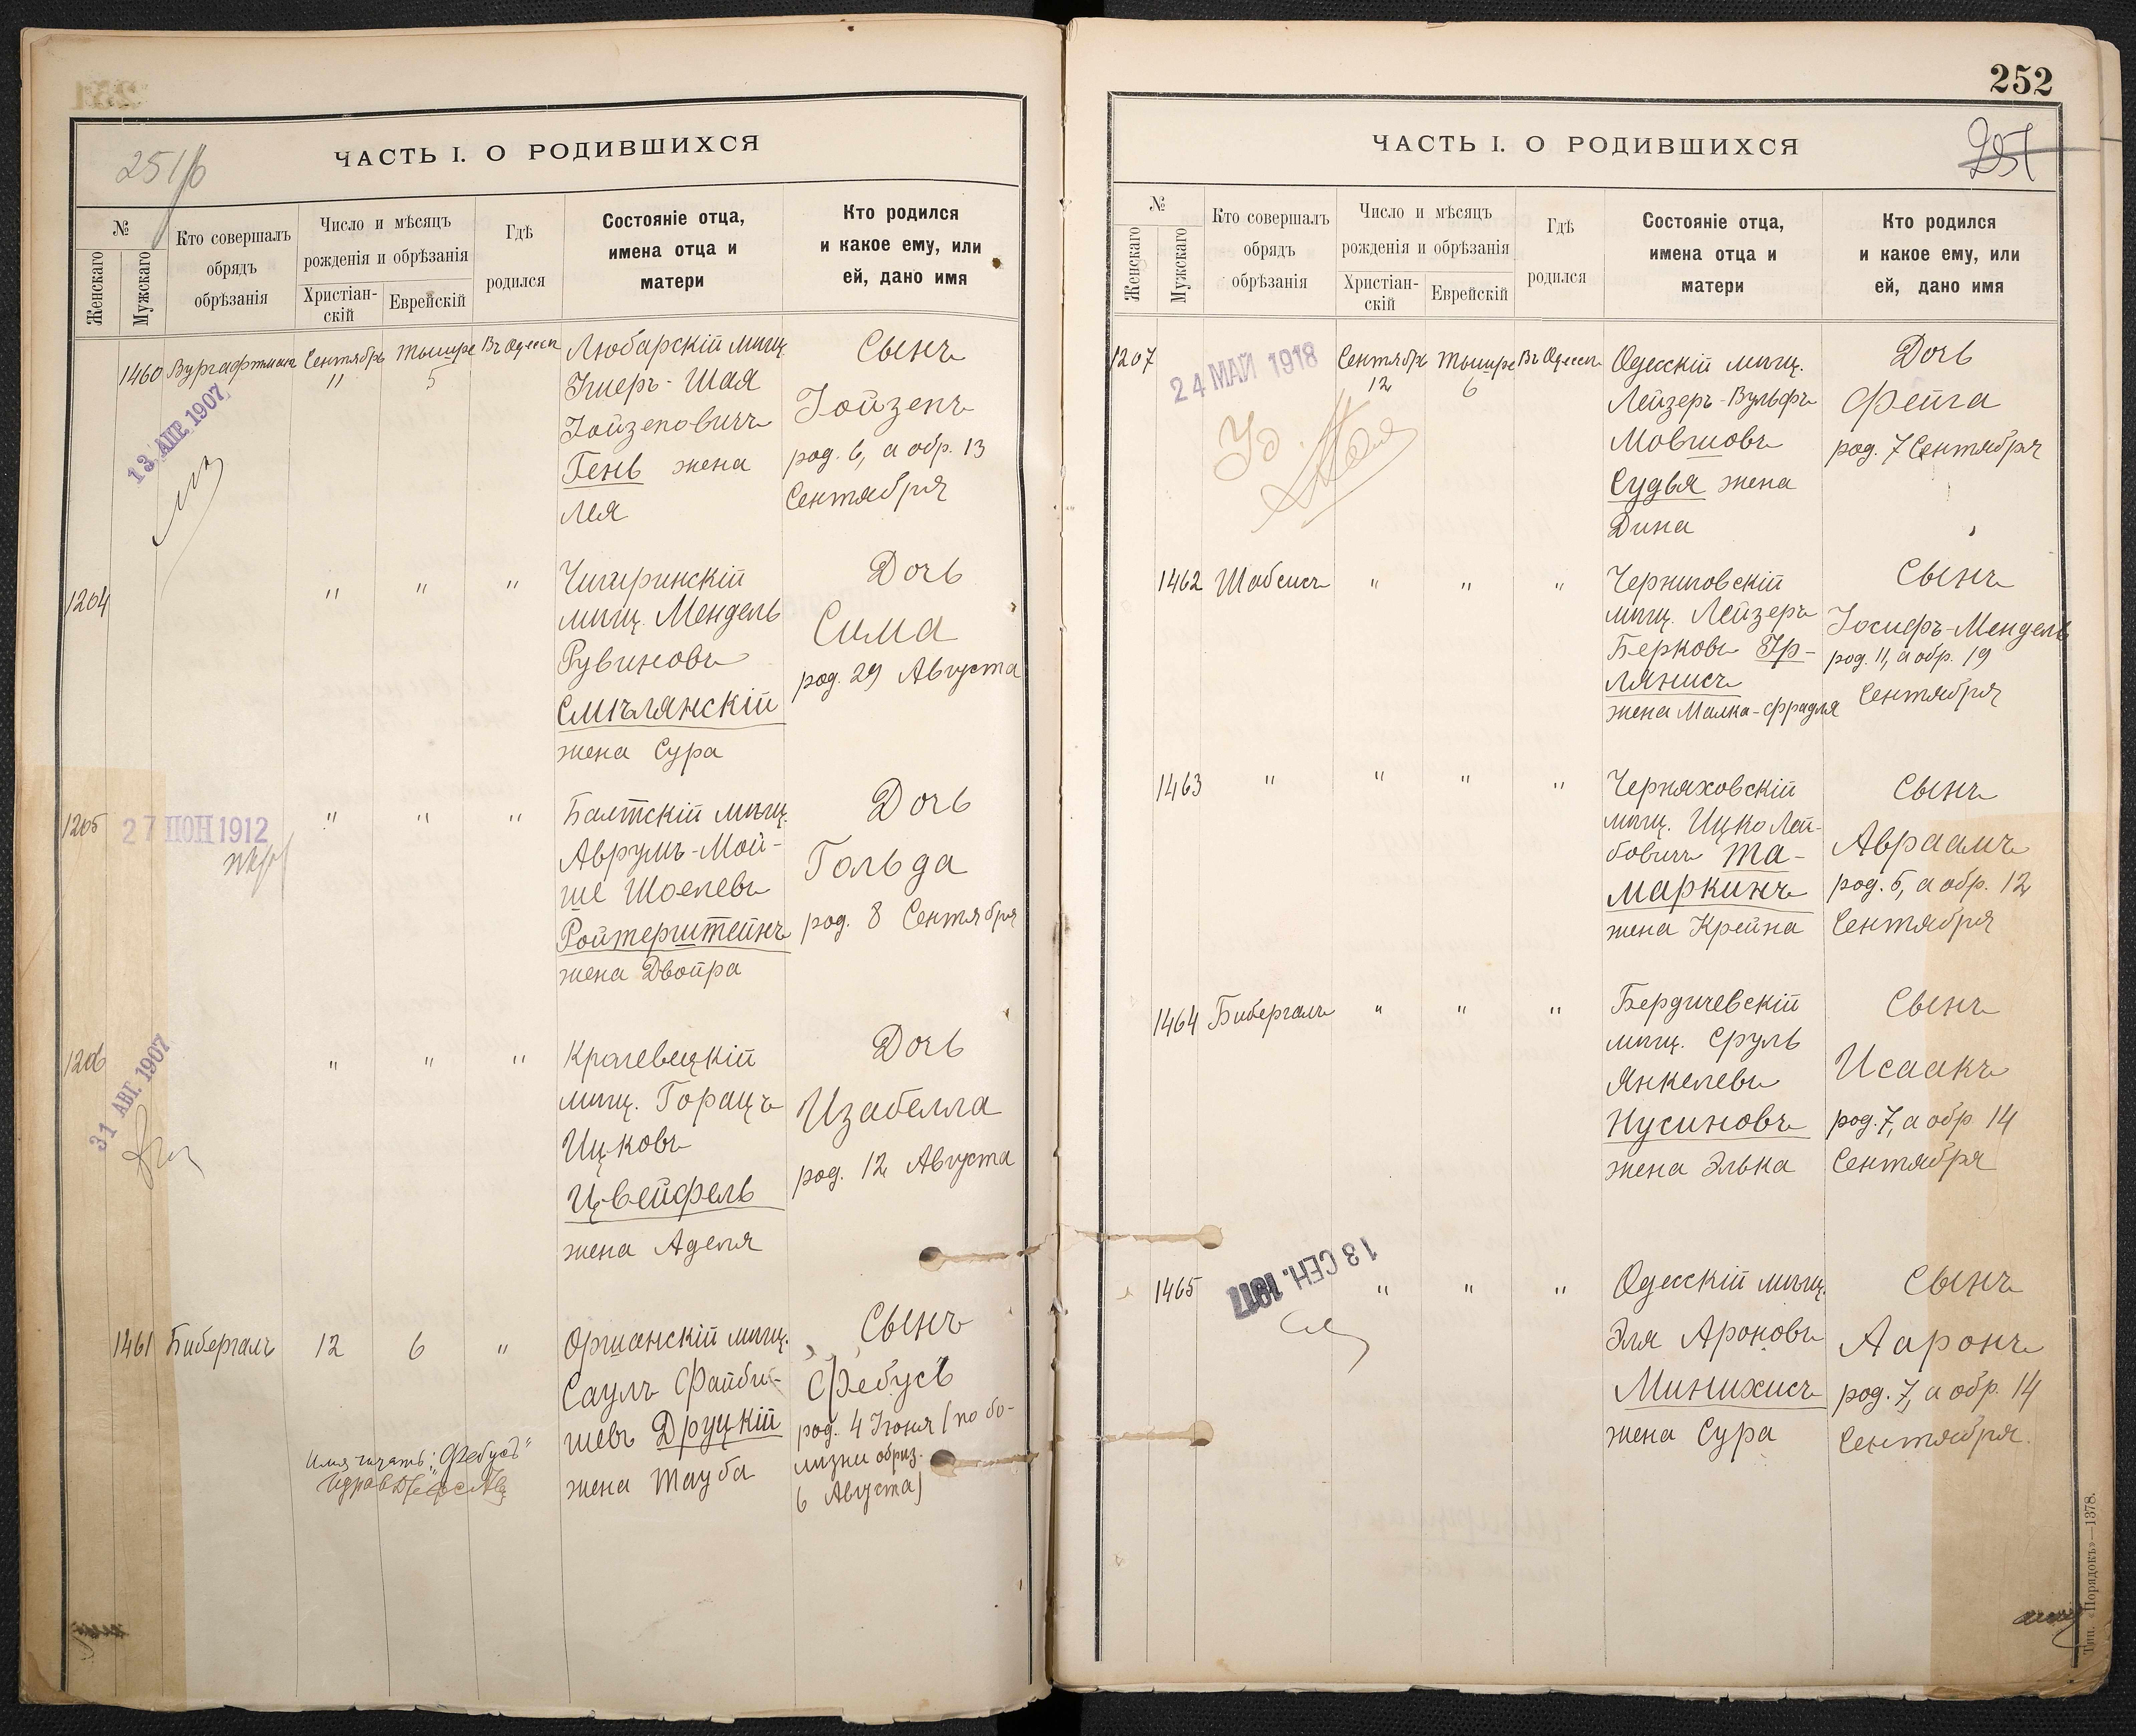 ЧАСТЬ I. О РОДИВШИХСЯ
№
Женскаго
Мужскаго
Кто совершалъ
обрядъ
обрѣзанія
Число и мѣсяцъ
рожденія и обрѣзанія
Христіан-
скій
Еврейскій
Гдѣ
родился
Состояніе отца,
имена отца и
матери
Кто родился
и какое ему, или
ей, дано имя
1460
Вургафтманъ
Сентябрь
11
Тышре
5
Въ Одессѣ
Любарскій мѣщ.
Гиеръ-Шая
Іойзеповичъ
Гень жена
Лея
Сынъ
Іойзепъ
род. 6, а обр. 13
Сентября
13 АПР 1907
1204
"
"
"
Чигиринскій
мѣщ. Мендель
Рувиновъ
Смѣлянскій
жена Сура
Дочь
Сима
род. 29 Августа
1205
27 ІЮН 1912
"
"
"
Балтскій мѣщ.
Аврумъ-Мой-
ше Шоелевъ
Ройтерштейнъ
жена Двойра
Дочь
Гольда
род. 8 Сентября
1206
31 АВГ. 1907
"
"
"
мѣщ. Горацъ
Ицковъ
Цвейфель
жена Аделя
Дочь
Изабелла
род. 12 Августа
1461
Бибергалъ
12
6
"
Оршанскій мѣщ.
Саулъ Файби-
шевъ Друцкій
жена Тауба
Сынъ
Фебусъ
род. 4 Іюня (по бо-
лѣзни обрѣз.
6 Августа)
Имя читать: „Фебусъ"
252
ЧАСТЬ I. О РОДИВШИХСЯ
251
№
Женскаго
Мужскаго
Кто совершалъ
обрядъ
обрѣзанія
Число и мѣсяцъ
рожденія и обрѣзанія
Христіан-
скій
Еврейскій
Гдѣ
родился
Состояніе отца,
имена отца и
матери
Кто родился
и какое ему, или
ей, дано имя
1207
24 МАЙ 1918
Сентябрь
12
Тышре
6
Въ Одессѣ
Одесскій мѣщ.
Лейзеръ-Вульфъ
Мовшовъ
Судья жена
Дина
Дочь
Фейга
род. 7 Сентября
1462
Шабсисъ
"
"
"
Черниговскій
мѣщ. Лейзеръ
Берковъ Гр-
лянисъ
жена Малка-Фрадля
Сынъ
Іосифъ-Мендель
род. 11, а обр. 19
Сентября
1463
"
"
"
"
Черняховскій
мѣщ. Ицко Лей-
бовичъ Та-
маркинъ
жена Крейна
Сынъ
Авраамъ
род. 5, а обр. 12
Сентября
1464
Бибергалъ
"
"
"
Бердичевскій
мѣщ. Сруль
Янкелевъ
Нусиновъ
жена Элька
Сынъ
Исаакъ
род. 7, а обр. 14
Сентября
1465
13 СЕН. 1917
"
"
"
Одесскій мѣщ.
Эля Ароновъ
Минихисъ
жена Сура
Сынъ
Ааронъ
род. 7, а обр. 14
Сентября.
Тип. «Порядокъ»—1378.